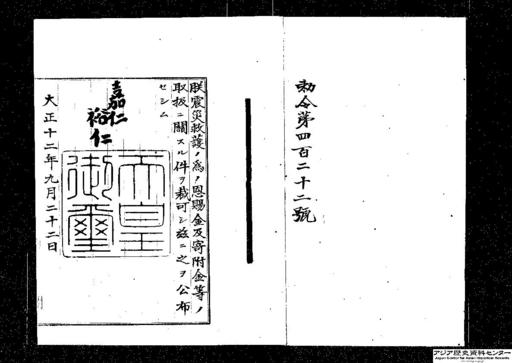 勅令第四百二十二號
朕震災救護ノ爲ノ恩賜金及寄附金等ノ
取扱ニ關スル件ヲ裁可シ玆ニ之ヲ公布
セシム
嘉仁
裕仁
天皇
御璽
大正十二年九月二十二日
アジア歴史資料センター
Japan Center for Asian Historical Records